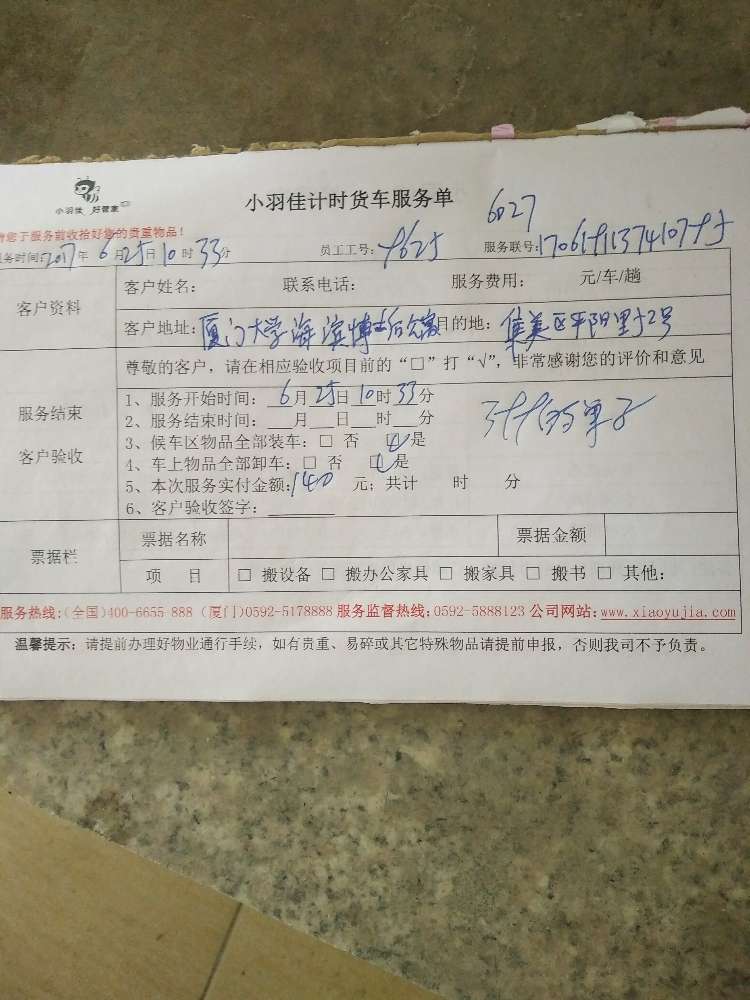 小羽佳 好管家
小羽佳计时货车服务单
6027
请您于服务前收拾好您的贵重物品！
务时间：2017年6月25日10时33分 员工工号： 服务联号：
客户资料
客户姓名： 联系电话： 服务费用： 元/车/趟
客户地址：厦门大学海滨博士后公寓 目的地：集美区平阳里
尊敬的客户，请在相应验收项目前的“□”打“√”，非常感谢您的评价和意见
服务结束
客户验收
1、服务开始时间：6月25日10时33分
2、服务结束时间：___月___日___时___分
3、候车区物品全部装车：□ 否 ☑是
4、车上物品全部卸车：□ 否 ☑是
5、本次服务实付金额：140 元；共计 时 分
6、客户验收签字：
的单子
票据栏
票据名称 票据金额
项 目 □ 搬设备 □ 搬办公家具 □ 搬家具 □ 搬书 □ 其他：
服务热线：(全国)400-6655 888 (厦门)0592-5178888 服务监督热线：0592-5888123 公司网站：www.xiaoyujia.com
温馨提示：请提前办理好物业通行手续，如有贵重、易碎或其它特殊物品请提前申报，否则我司不予负责。